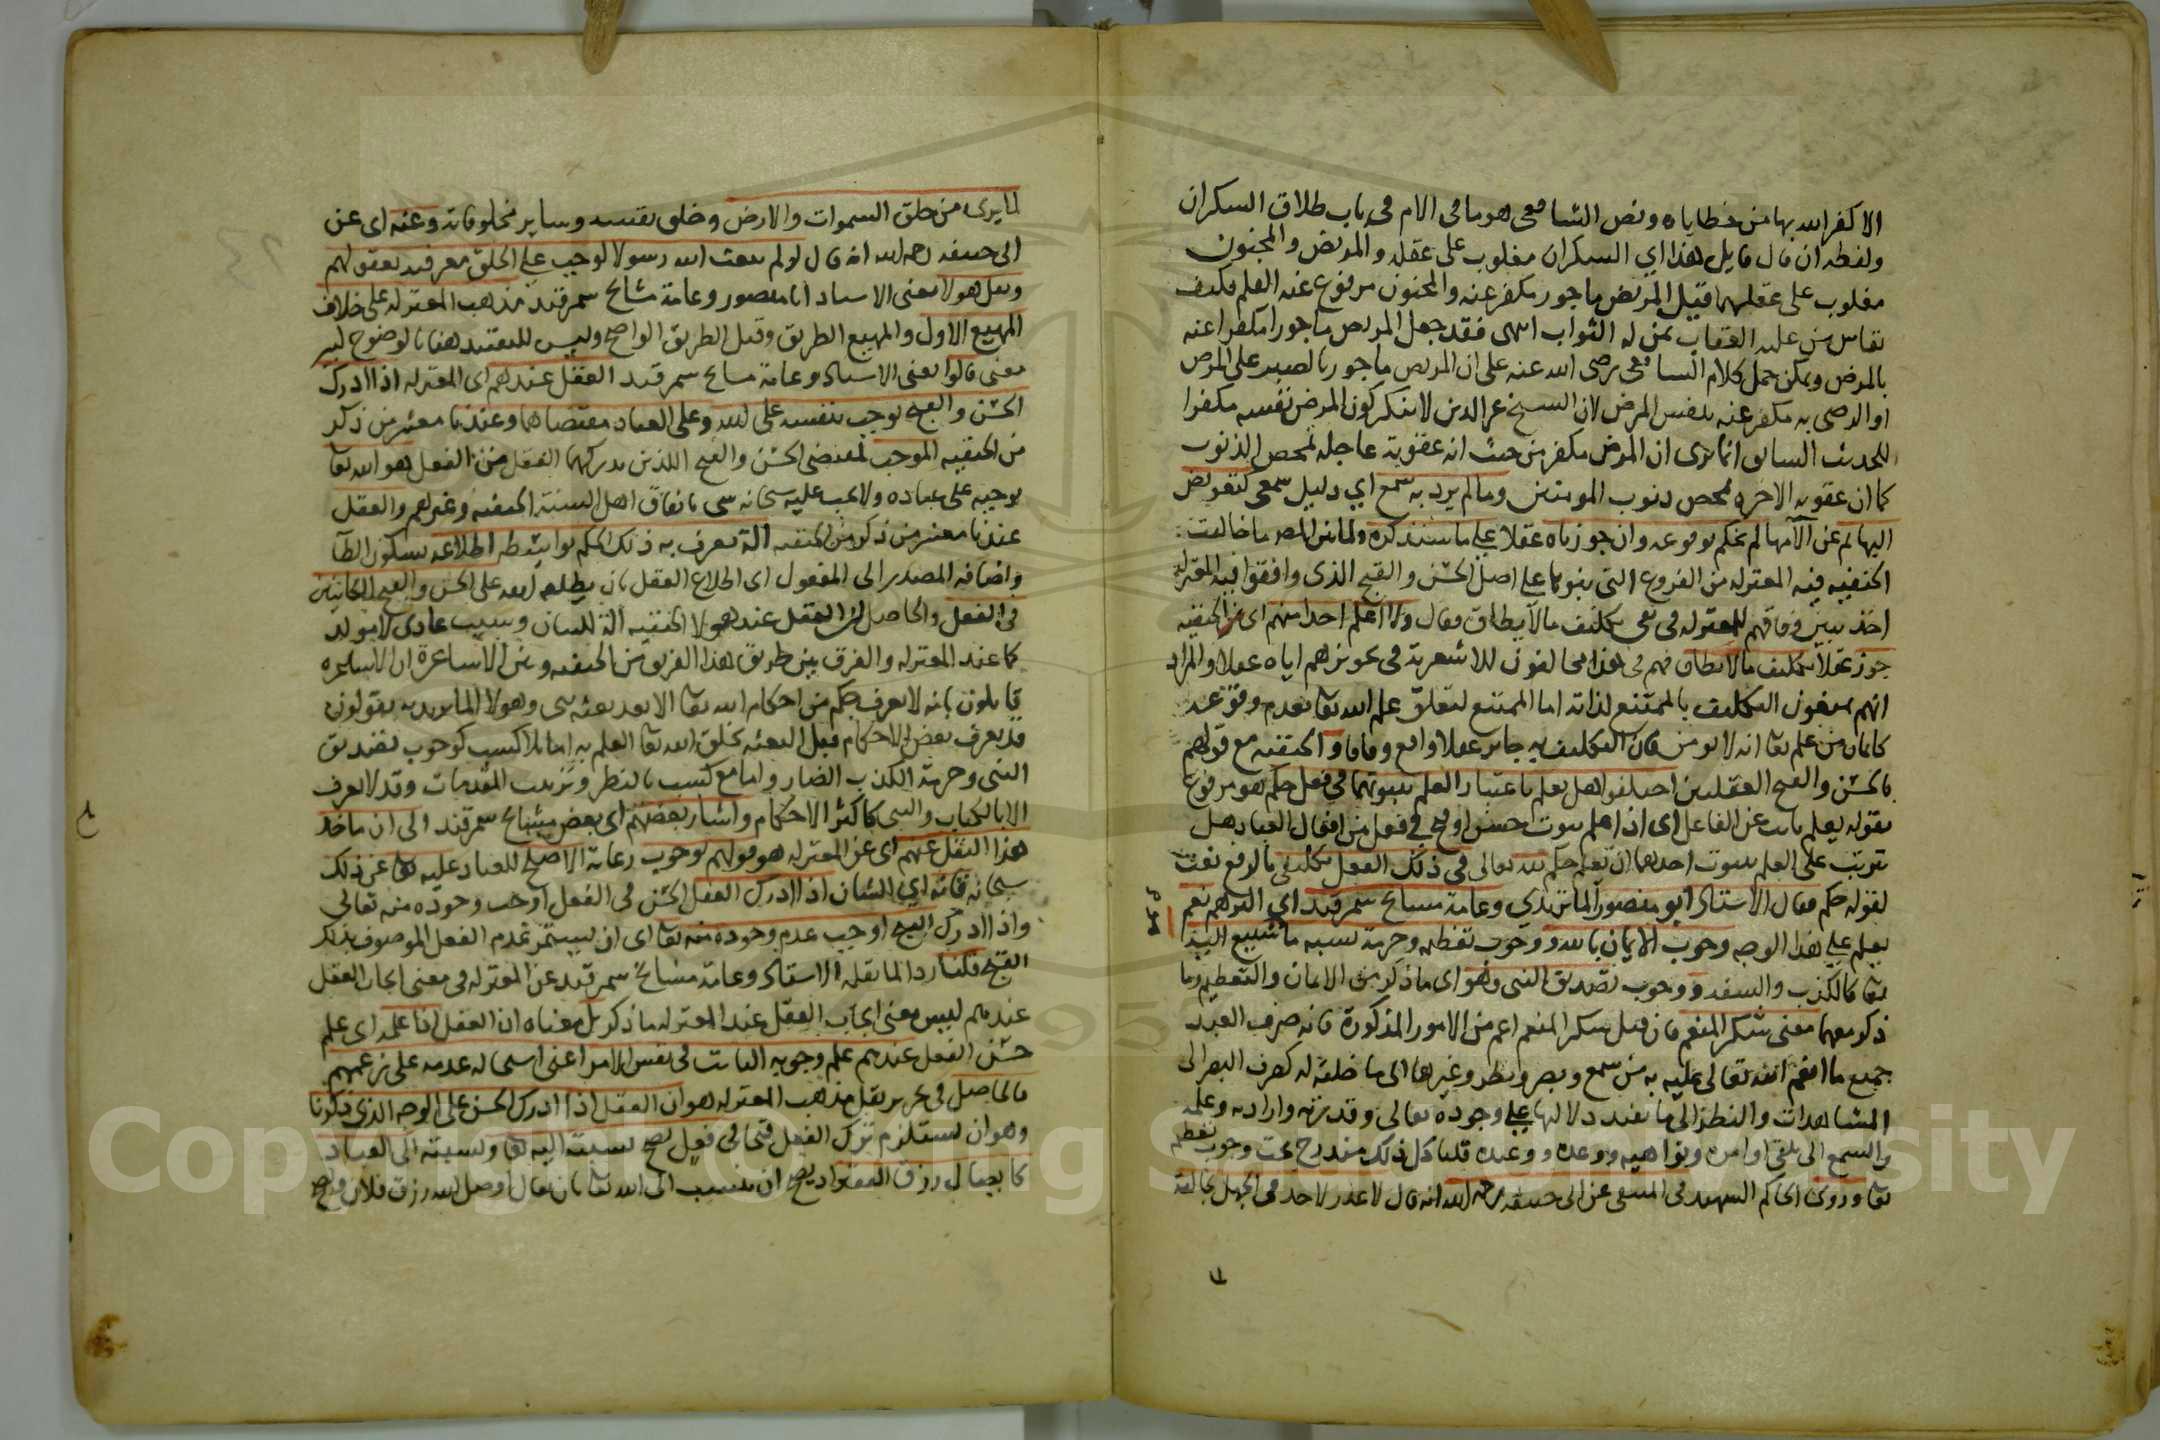 الا كفر الله بها من خطاياه ونص الشافعي هو ما في الام في باب طلاق السكران
ولفظه ان قال قايل هذا اي السكران مغلوب على عقله والمريض والمجنون
مغلوب على عقلهما قيل المريض ماجور مكفر عنه والمجنون مرفوع عنه القلم فكيف
يقاس من عليه العقاب بمن له الثواب انتهى فقد جعل المريض ماجورا مكفرا عنه
بالمرض ويمكن حمل كلام الشافعي رضي الله عنه على ان المريض ماجور بالصبر على المرض
او الرضى به مكفر عنه بنفس المرض لان الشيخ عز الدين لا ينكر كون المرض نفسه مكفرا
للحديث السابق انما يرى ان المرض مكفر من حيث انه عقوبة عاجله تمحص الذنوب
كما ان عقوبه الاخره تمحص ذنوب المومنين وما لم يرد به سمع اي دليل سمعي كتعويض
البهايم عن الآمها لم نحكم بوقوعه وان جوزناه عقلا على ما سنذكره ولما بين المص ما خالفت
الحنفيه فيه المعتزله من الفروع التي بنوها على اصل الحسن والقبح الذي وافقوا فيه المعتزله
اخذ يبين وفاقهم للمعتزله في نفي تكليف ما لا يطاق فقال ولا اعلم احدا منهم اي من الحنفيه
جوز عقلا تكليف ما لا يطاق فهم في هذا مخالفون للاشعرية في تجويزهم اياه عقلا والمراد
انهم يمنعون التكليف بالممتنع لذاته اما الممتنع لتعلق علم الله تعا بعدم وقوعه
كايمان من علم تعا انه لا يومن فان التكليف به جايز عقلا واقع وفاقا والحنفيه مع قولهم
بالحسن والقبح العقليين اختلفوا هل يعلم باعتبار العلم بثبوتهما في فعل حكم هو مرفوع
بقوله يعلم نايب عن الفاعل اى اذا علم ثبوت حسن او قبح في فعل من افعال العباد هل
يترتب على العلم بثبوت احدهما ان يعلم حكم لله تعالى في ذلك الفعل تكليفي بالرفع نعت
لقوله حكم فقال الاستاذ ابو منصور الماتريدي وعامة مشايخ سمرقند اي اكثرهم نعم
يعلم على هذا الوجه وجوب الايمان بالله ووجوب تعظيمه وحرمة نسبه ما شنيع اليه
تعا كالكذب والسفه ووجوب تصديق النبي وهو اى ما ذكر من الايمان والتعظيم وما
ذكر معهما معنى شكر المنعم فان قيل شكر المنعم اعم من الامور المذكورة فانه صرف العبد
جميع ما انعم الله تعالى عليه به من سمع وبصر ونظر وغيرها الى ما خلقه له كصرف البصر الى
المشاهدات والنظر الى ما يفيد دلالتها على وجوده تعالى وقدرته وارادته وعلمه
والسمع الى تلقي اوامره ونواهيه ووعده ووعيده قلنا كل ذلك مندرج تحت وجوب تعظيمه
تعا وروى الحاكم الشهيد في المنتقى عن ابى حنيفه رحمه الله انه قال لا عذر لاحد في الجهل بخالقه
لما يرى من خلق السموات والارض وخلق نفسه وساير مخلوقاته وعنه اى عن
ابي حنيفه رحمه الله انه قال لو لم يبعث الله رسولا لوجب على الخلق معرفته بعقولهم
ونقل هولا يعنى الاستاد ابا منصور وعامة مشايخ سمرقند مذهب المعتزله على خلاف
المهيع الاول والمهيع الطريق وقيل الطريق الواضح وليس للتقييد هنا بالوضوح كبير
معنى قالوا يعنى الاستاد وعامة مشايخ سمرقند العقل عندهم اى المعتزله اذا ادرك
الحسن والقبح يوجب بنفسه على الله وعلى العباد مقتضاهما وعندنا معشر من ذكر
من الحنفيه الموجب لمقتضى الحسن والقبح اللذين يدركهما العقل من الفعل هو الله تعا
يوجبه على عباده ولا يجب عليه سبحانه شي باتفاق اهل السنة الحنفيه وغيرهم والعقل
عندنا معشر من ذكر من الحنفيه الة يعرف به ذلك الحكم بواسطه اطلاعه بسكون الطآ
واضافه المصدر الى المفعول اى اطلاع العقل بان يطلعه الله على الحسن والقبح الكاينين
فى الفعل والحاصل ان العقل عند هولا الحنفيه آلة للبيان وسبب عادى لا مولد
كما عند المعتزله والفرق بين طريق هذا الفريق من الحنفيه وبين الاشاعرة ان الاشاعره
قايلون بانه لا يعرف حكم من احكام الله تعا الا بعد بعثه نبى وهولا الماتريديه يقولون
قد يعرف بعض الاحكام قبل البعثه بخلق الله تعا العلم به اما بلا كسب كوجوب تصديق
النبى وحرمة الكذب الضار واما مع كسب بالنظر وترتيب المقدمات وقد لا يعرف
الا بالكتاب والنبى كاكثر الاحكام واشار بعضهم اى بعض مشايخ سمرقند الى ان ماخذ
هذا النقل عنهم اى عن المعتزله هو قولهم بوجوب رعاية الاصلح للعباد عليه تعا عن ذلك
سبحانه فانه اي الشان اذا ادرك العقل الحسن فى الفعل اوجب وجوده منه تعالى
واذا ادرك القبح اوجب عدم وجوده منه تعا اى ان يستمر عدم الفعل الموصوف بذلك
القبح قلنا ردا لما نقله الاستاذ وعامة مشايخ سمرقند عن المعتزله في معنى ايجاب العقل
عندهم ليس معنى ايجاب العقل عند المعتزله ما ذكر بل معناه ان العقل اذا علم اى علم
حسن الفعل عندهم علم وجوبه الثابت في نفس الامر اعنى استحاله عدمه على زعمهم
فالحاصل في تحرير نقل مذهب المعتزله هو ان العقل اذا ادرك الحسن على الوجه الذي ذكرنا
وهو ان يستلزم ترك الفعل قبحا في فعل يصح نسبته اليه تعا ونسبته الى العباد
كايصال رزق الفقراء يصح ان ينسب الى الله تعا بان يقال اوصل الله رزق فلان ويصح